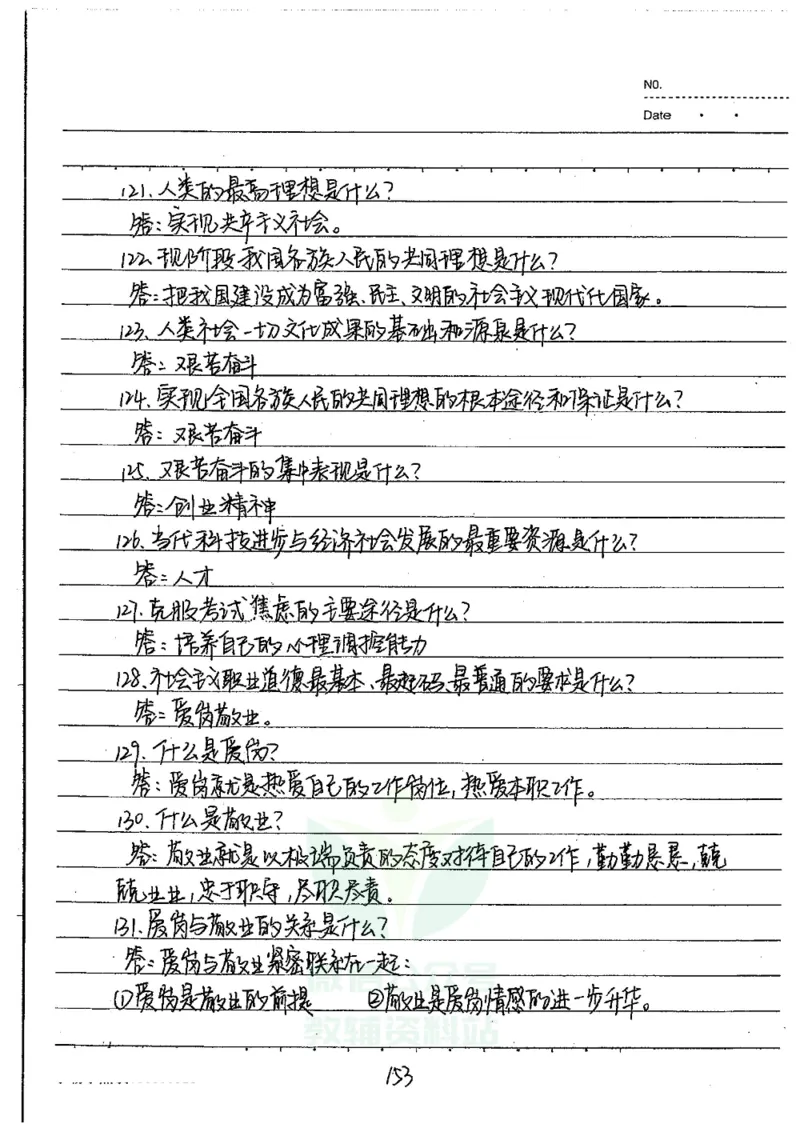 NO.
Date
121.人类的最高理想是什么?
答:实现共产主义社会。
122.现阶段我国各族人民的共同理想是什么?
答:把我国建设成为富强、民主、文明的社会主义现代化国家。
123、人类社会一切文化成果的基础和源泉是什么?
答:艰苦奋斗
124、实现全国各族人民的共同理想的根本途径和保证是什么?
答:艰苦奋斗
125、艰苦奋斗的集中表现是什么?
答:创业精神
126、当代科技进步与经济社会发展的最重要资源是什么?
答:人才
127.克服考试焦虑的主要途径是什么?
答:培养自己的心理调控能力
128.社会主义职业道德最基本、最起码、最普通的要求是什么?
答:爱岗敬业。
129.什么是爱岗?
答:爱岗就是热爱自己的工作岗位,热爱本职工作。
130.什么是敬业?
答:敬业就是以极端负责的态度对待自己的工作,勤勤恳恳,兢
兢业业,忠于职守,尽职尽责。
131.爱岗与敬业的关系是什么?
答:爱岗与敬业紧密联系在一起:
①爱岗是敬业的前提 ②敬业是爱岗情感的进一步升华。
教辅资料站
153